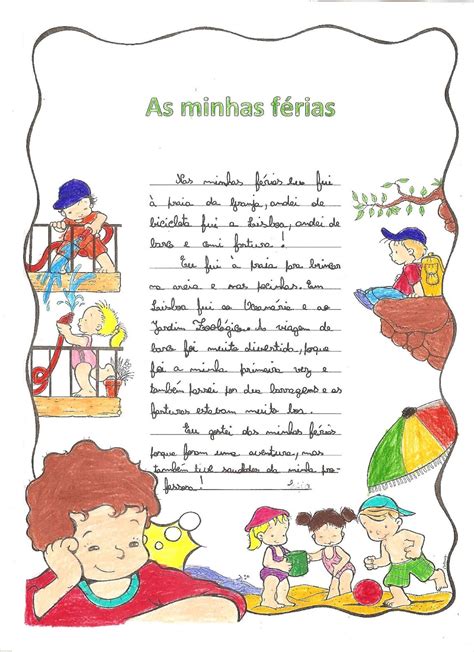 As minhas férias
Nas minhas férias eu fui
à praia da Granja, andei de
bicicleta fui a Lisboa, andei de
barco e comi fartura!
Eu fui à praia pra brincar
na areia e nas pocinhas. Em
Lisboa fui ao Oceanário e ao
Jardim Zoológico. A viagem de
barco foi muito divertida, porque
foi a minha primeira vez e
também passei por duas barragens e as
farturas estavam muito boas.
Eu gostei das minhas férias
porque foram uma aventura, mas
também tive saudades da minha pro-
fessora!